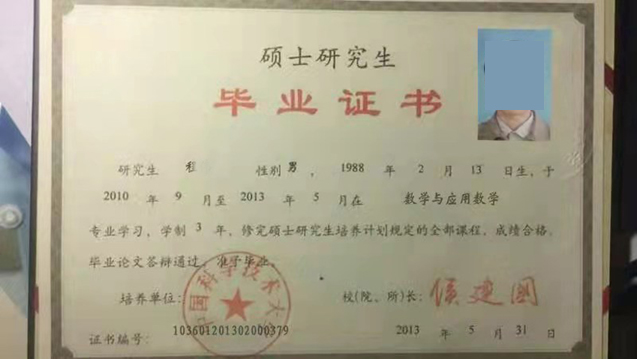 硕士研究生
毕业证书
研究生 程 性别 男 ，1988 年 2 月 13 日生，于
2010 年 9 月至 2013 年 5 月在 数学与应用数学
专业学习，学制 3 年，修完硕士研究生培养计划规定的全部课程，成绩合格，
毕业论文答辩通过，准予毕业。
中国科学技术大
培养单位： 校(院、所)长： 侯建国
证书编号： 103601201302000379 2013 年 5 月 31 日